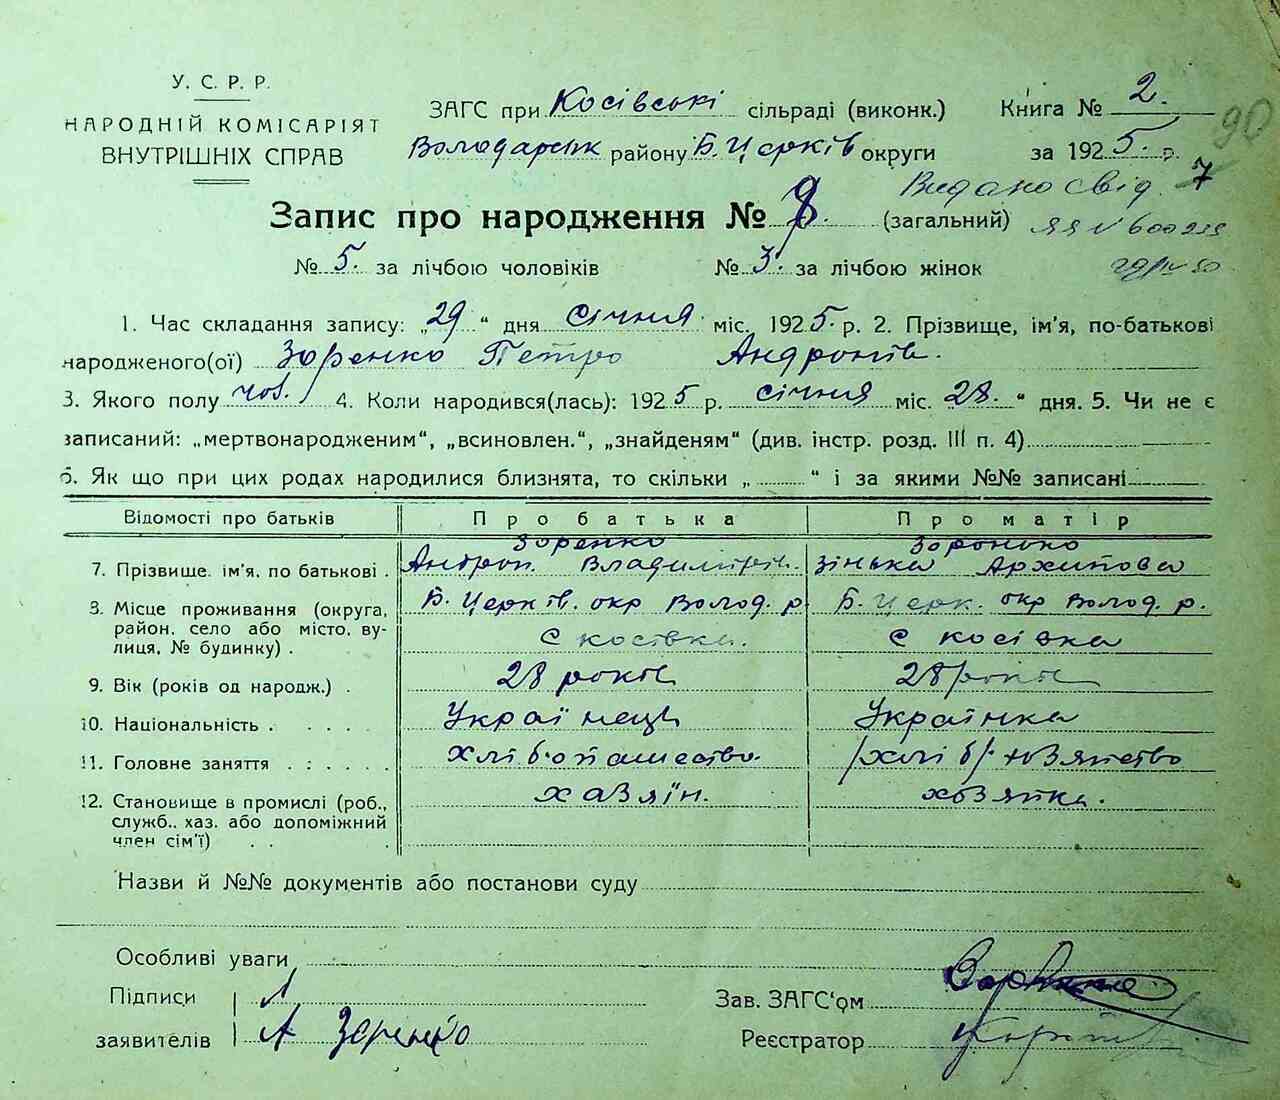 У. С. Р. Р.
НАРОДНІЙ КОМІСАРІЯТ
ВНУТРІШНІХ СПРАВ
ЗАГС при Косівські сільраді (виконк.) Книга № 2.
Володарськ району Б. Церків округи за 1925. р.
90
Видано свід. 7
Запис про народження № 8. (загальний) ЯЯ №
№ 5. за лічбою чоловіків № 3. за лічбою жінок
1. Час складання запису: „29“ дня січня міс. 1925. р. 2. Прізвище, ім'я, по-батькові
народженого(ої) Зоренко Петро Андронів.
3. Якого полу чов. 4. Коли народився(лась): 1925 р. січня міс. „28.“ дня. 5. Чи не є
записаний: „мертвонародженим“, „всиновлен.“, „знайденям“ (див. інстр. розд. III п. 4)
6. Як що при цих родах народилися близнята, то скільки „ “ і за якими №№ записані
Відомості про батьків Про батька Про матір
Зоренко
7. Прізвище. ім'я. по батькові . Андрон. Владимірів. Зінька Архипова
8. Місце проживання (округа, Б. Церків. окр Волод. р. Б. Церк. окр Волод. р.
район. село або місто. ву- с косівка. с косівка
лиця, № будинку) .
9. Вік (років од народж.) . 28 років 28 років
10. Національність . . . . . Українець Українка
11. Головне заняття . . . . . хлібопашество. /хліб/. хозяйство
12. Становище в промислі (роб., хазяін. хозяйка.
служб., хаз. або допоміжний
член сім'ї) . . .
Назви й №№ документів або постанови суду
Особливі уваги
Підписи
Зав. ЗАГС'ом
заявителів А Зоренко
Реєстратор